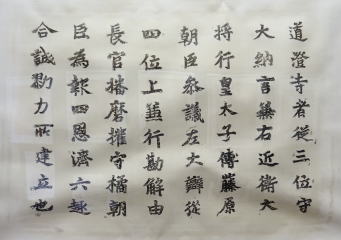 道澄寺者従三位守
大納言兼右近衛大
将行皇太子傅藤原
朝臣参議左大辨従
四位上兼行勘解由
長官播磨権守橘朝
臣為報四恩済六趣
合誠勠力所建立也